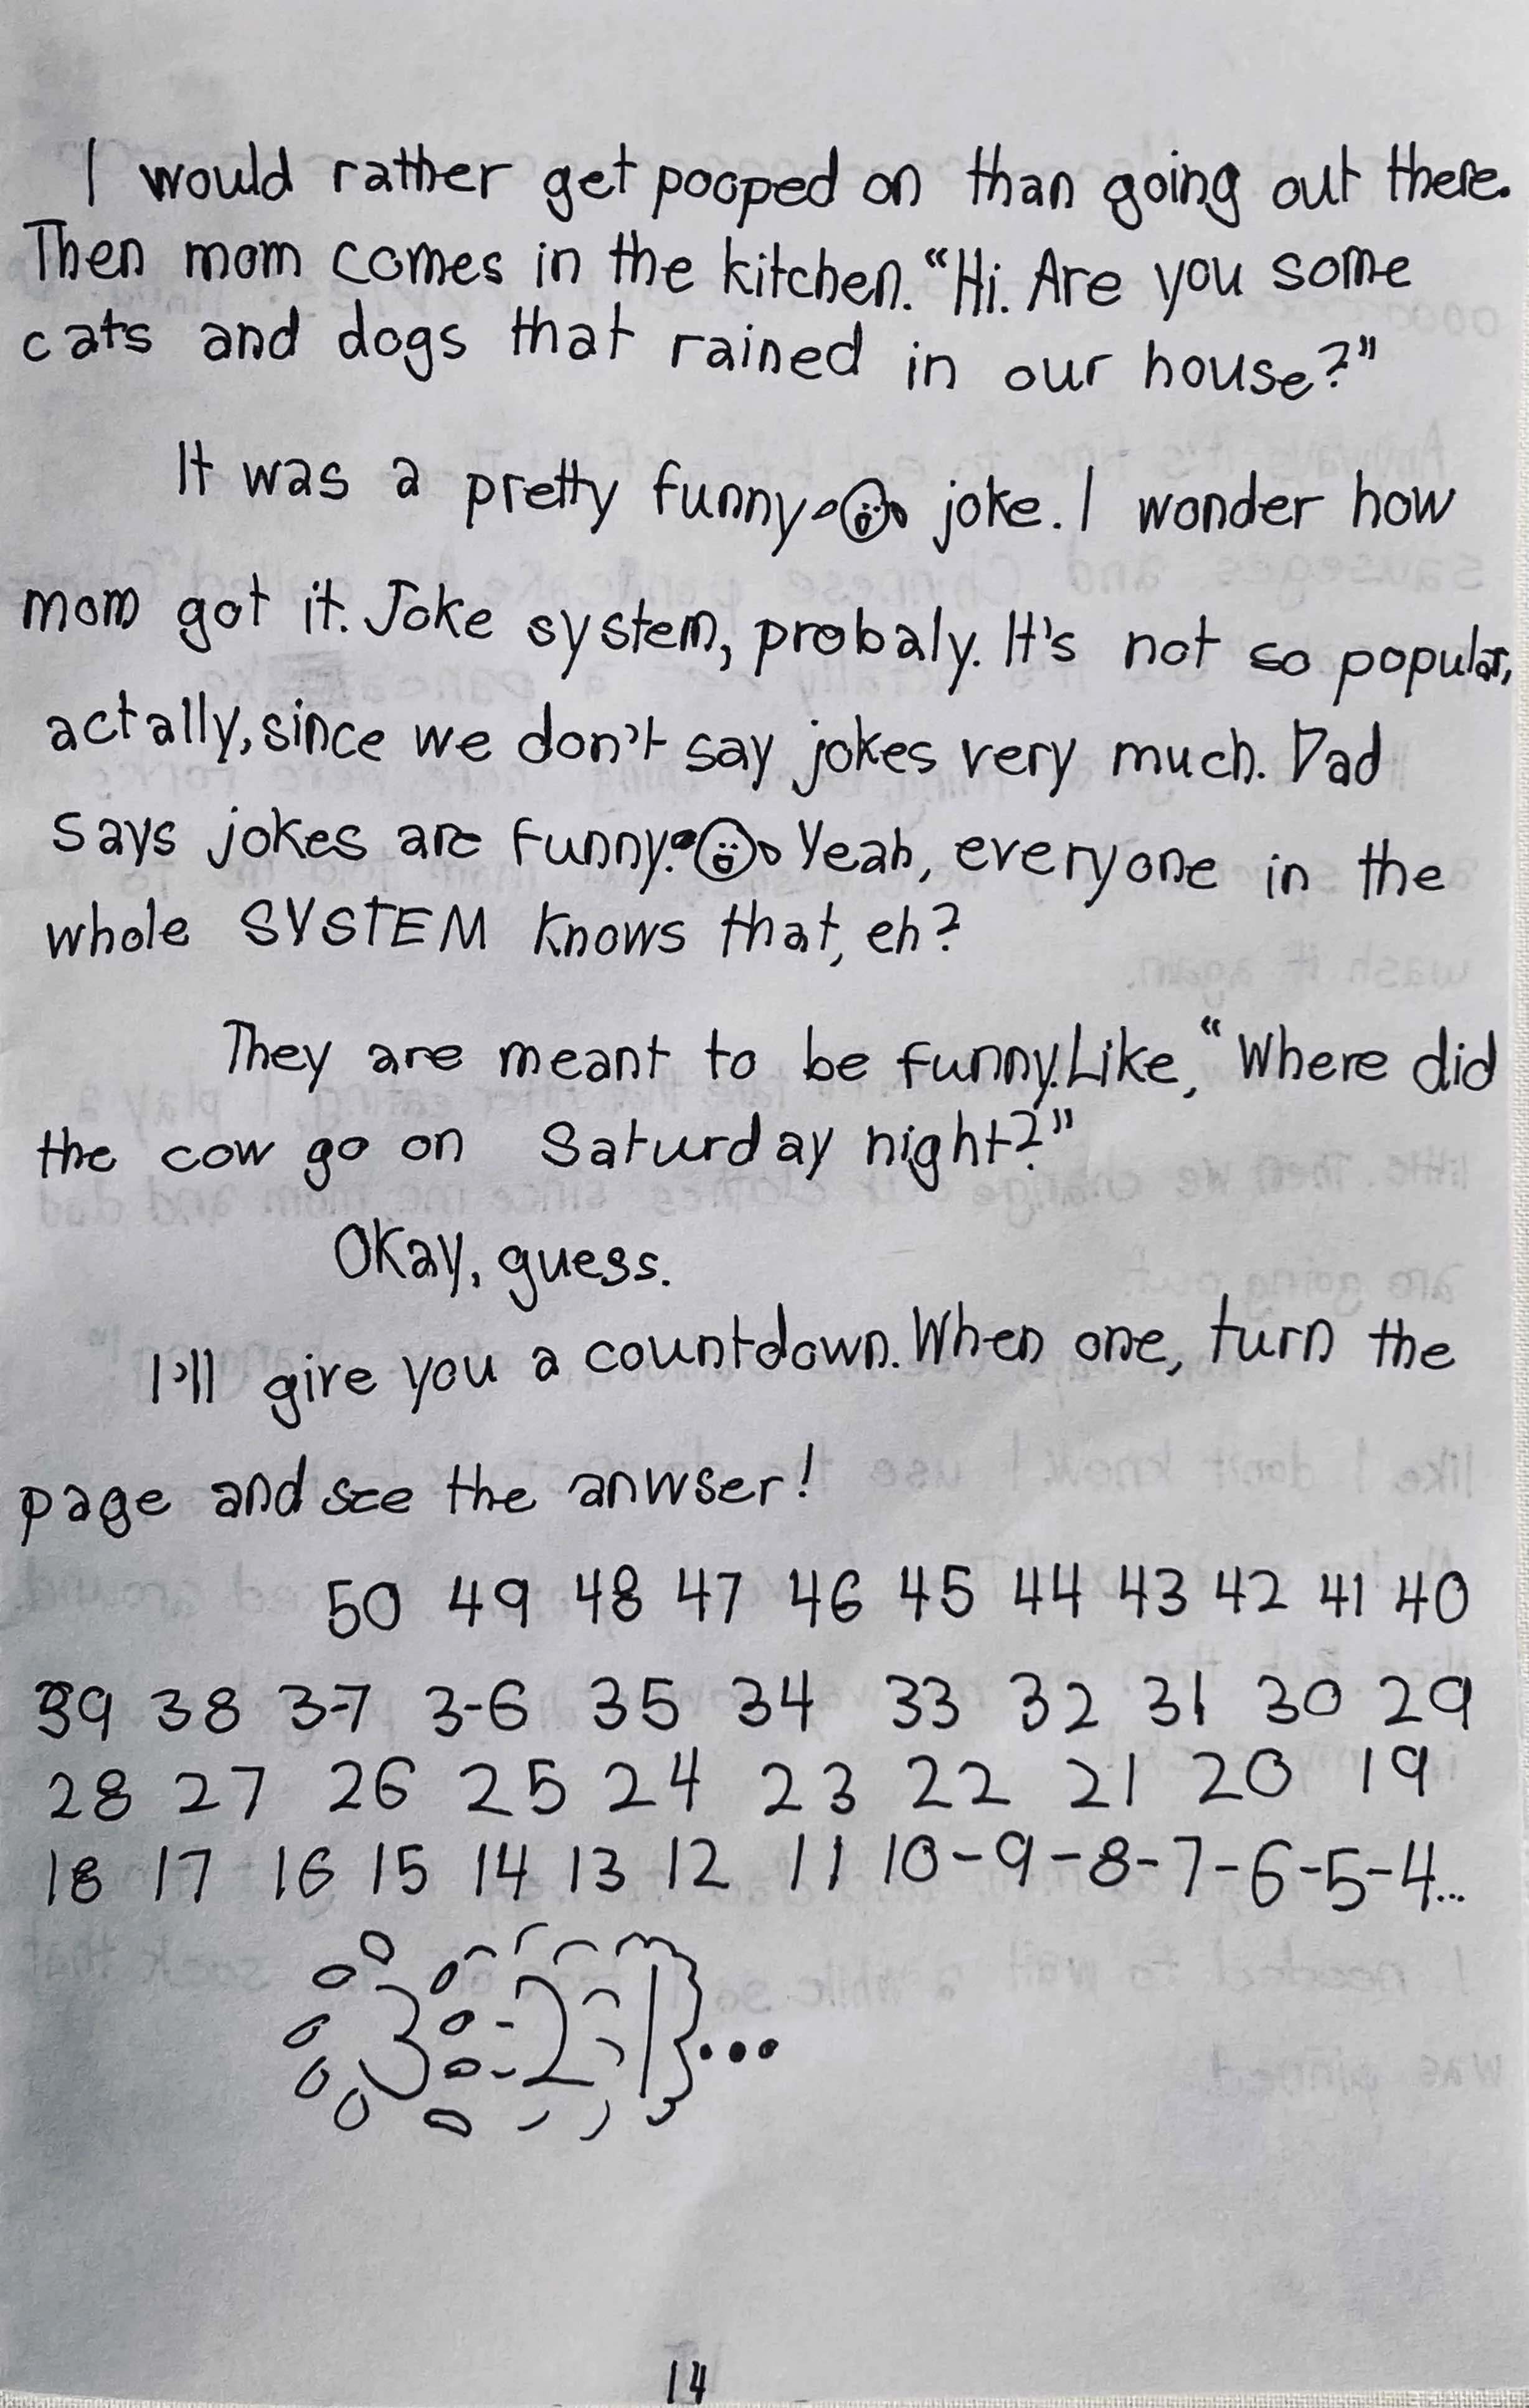 I would rather get pooped on than going out there.
Then mom comes in the kitchen. "Hi. Are you some
cats and dogs that rained in our house?"
It was a pretty funny joke. I wonder how
mom got it. Joke system, probaly. It's not so popular,
actally, since we don't say jokes very much. Dad
says jokes are funny. Yeah, everyone in the
whole SYSTEM knows that, eh?
They are meant to be funny. Like, "Where did
the cow go on Saturday night?"
Okay, guess.
I'll give you a countdown. When one, turn the
page and see the anwser!
50 49 48 47 46 45 44 43 42 41 40
39 38 3-7 3-6 35 34 33 32 31 30 29
28 27 26 25 24 23 22 21 20 19
18 17 16 15 14 13 12 11 10-9-8-7-6-5-4...
3 2 1...
14